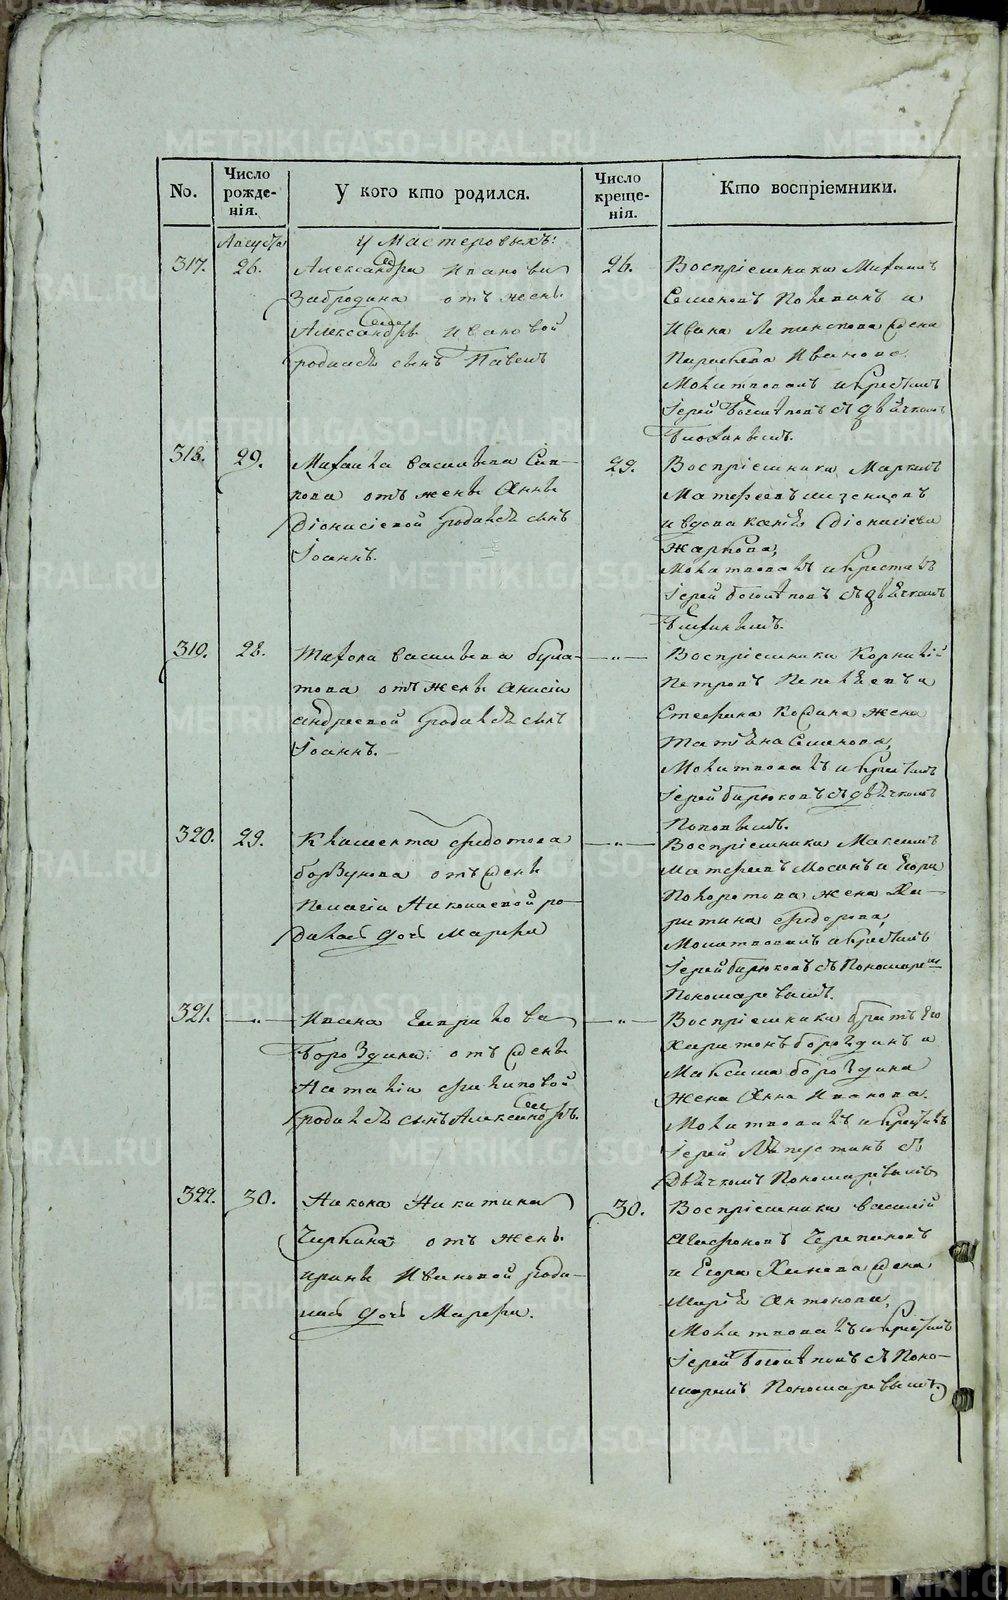 No.
Число рожде- нія.
У кого кто родился.
Число креще- нія.
Кто воспріемники.
Августа
У Мастеровыхъ:
317.
26.
Александра Иванова
Забродина отъ жены
Александры Ивановой
родился сынъ Павелъ
26.
Воспріемники Михаилъ
Семеновъ и
Ивана жена
Параскева Иванова.
Молитвовалъ и крестилъ
Іерей съ дьячкомъ
318.
29.
Михаила Васильева
отъ жены Анны
Діонисіевой родился сынъ
Іоаннъ.
29.
Воспріемники Маркъ
Матфеевъ
и вдова Ксенія Діонисіева
Жаркова,
Молитвовалъ и крестилъ
Іерей съ дьячкомъ
319.
28.
Тихона Васильева Була-
това отъ жены Анисіи
Андреевой родился сынъ
Іоаннъ.
— „ —
Воспріемники Корнилій
Петровъ и
Стефана жена
Татіана Семенова,
Молитвовалъ и крестилъ
Іерей Бирюковъ съ дьячкомъ
Поповымъ.
320.
29.
Климента Федотова
Борзунова отъ жены
Пелагіи Николаевой ро-
дилась дочь Марфа
— „ —
Воспріемники Максимъ
Матфеевъ Мосинъ и Егора
жена Ха-
ритина Федорова,
Молитвовалъ и крестилъ
Іерей Бирюковъ съ Пономаремъ
Пономаревымъ.
321.
— „ —
Ивана Гаврилова
Бороздина: отъ жены
Наталіи Филиповой
родился сынъ Александръ.
— „ —
Воспріемники братъ его
Харитонъ Бороздинъ и
Максима Бороздина
жена Анна Иванова.
Молитвовалъ и крестилъ
Іерей съ
Дьячкомъ Пономаревымъ
322.
30.
Никона Никитина
отъ жены
Ирины Ивановой роди-
лась дочь Марфа.
30.
Воспріемники Василій
Агафоновъ Черепановъ
и Егора жена
Марія Антонова,
Молитвовалъ и крестилъ
Іерей съ Поно-
маремъ Пономаревымъ.
METRIKI.GASO-URAL.RU